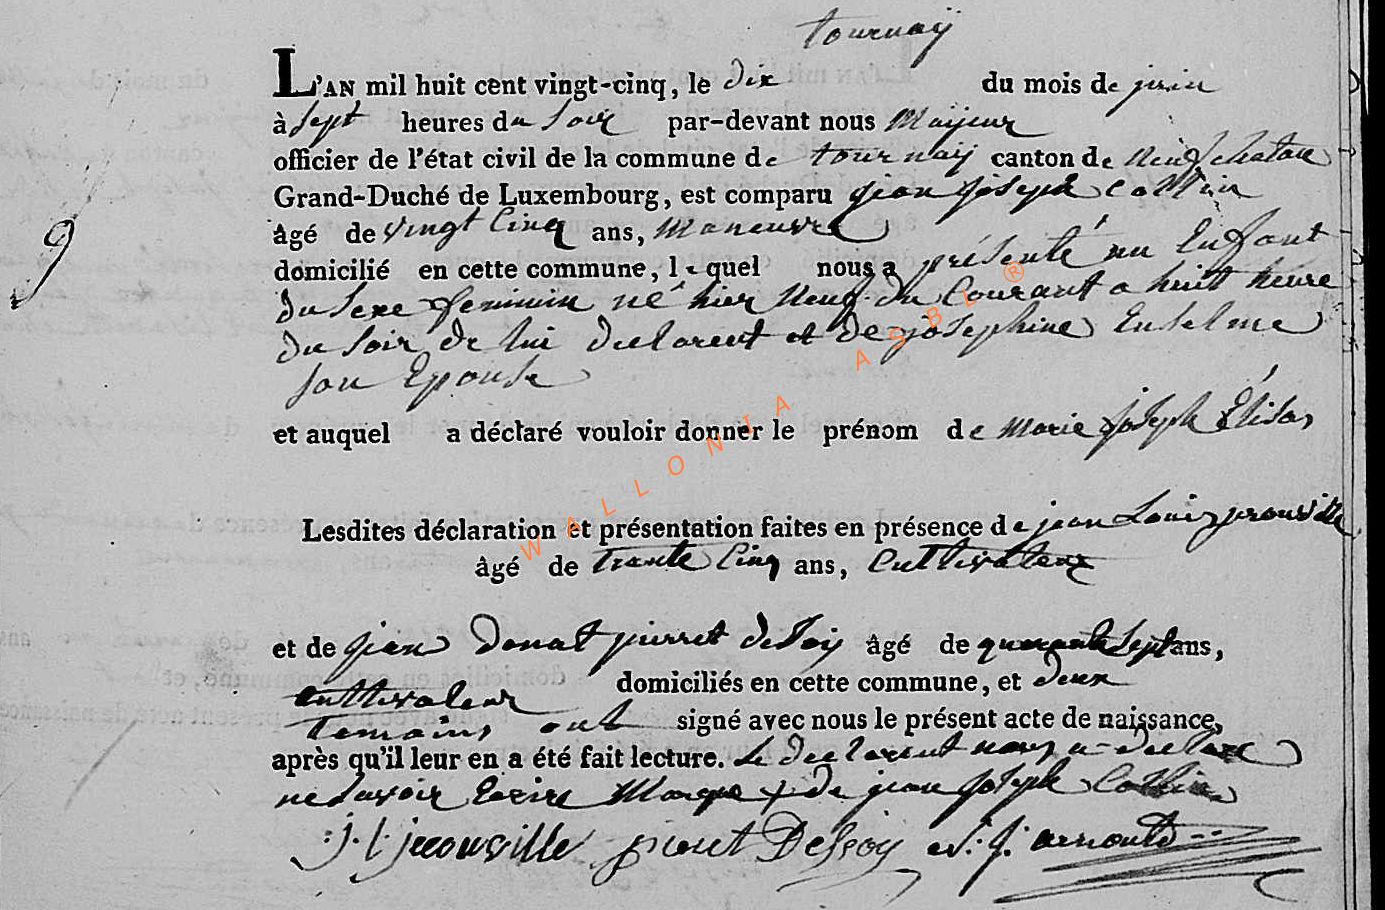 tournaÿ
L'AN mil huit cent vingt-cinq, le dix du mois de juin
à sept heures du soir par-devant nous Mayeur
officier de l'état civil de la commune de tournaÿ canton de neufchateau
Grand-Duché de Luxembourg, est comparu jean joseph
âgé de vingt cinq ans, maneuvre
domicilié en cette commune, lequel nous a présenté un Enfant
9
du sexe feminin né hier neuf du Courant a huit heure
du soir de lui declarent et de josephine Enselme
son Epouse
et auquel a déclaré vouloir donner le prénom de marie joseph Élisa
Lesdites déclaration et présentation faites en présence de jean Louis
âgé de trante cinq ans, cultivateur
et de jean Donat pierret âgé de quarante sept ans,
cultivateur domiciliés en cette commune, et deux
temoins ont signé avec nous le présent acte de naissance,
après qu'il leur en a été fait lecture. Le declarent nous a declare
ne savoir Ecrire Marque + de jean joseph
J. L. pierret Dessoy arnould
WALLONIA ASBL ®